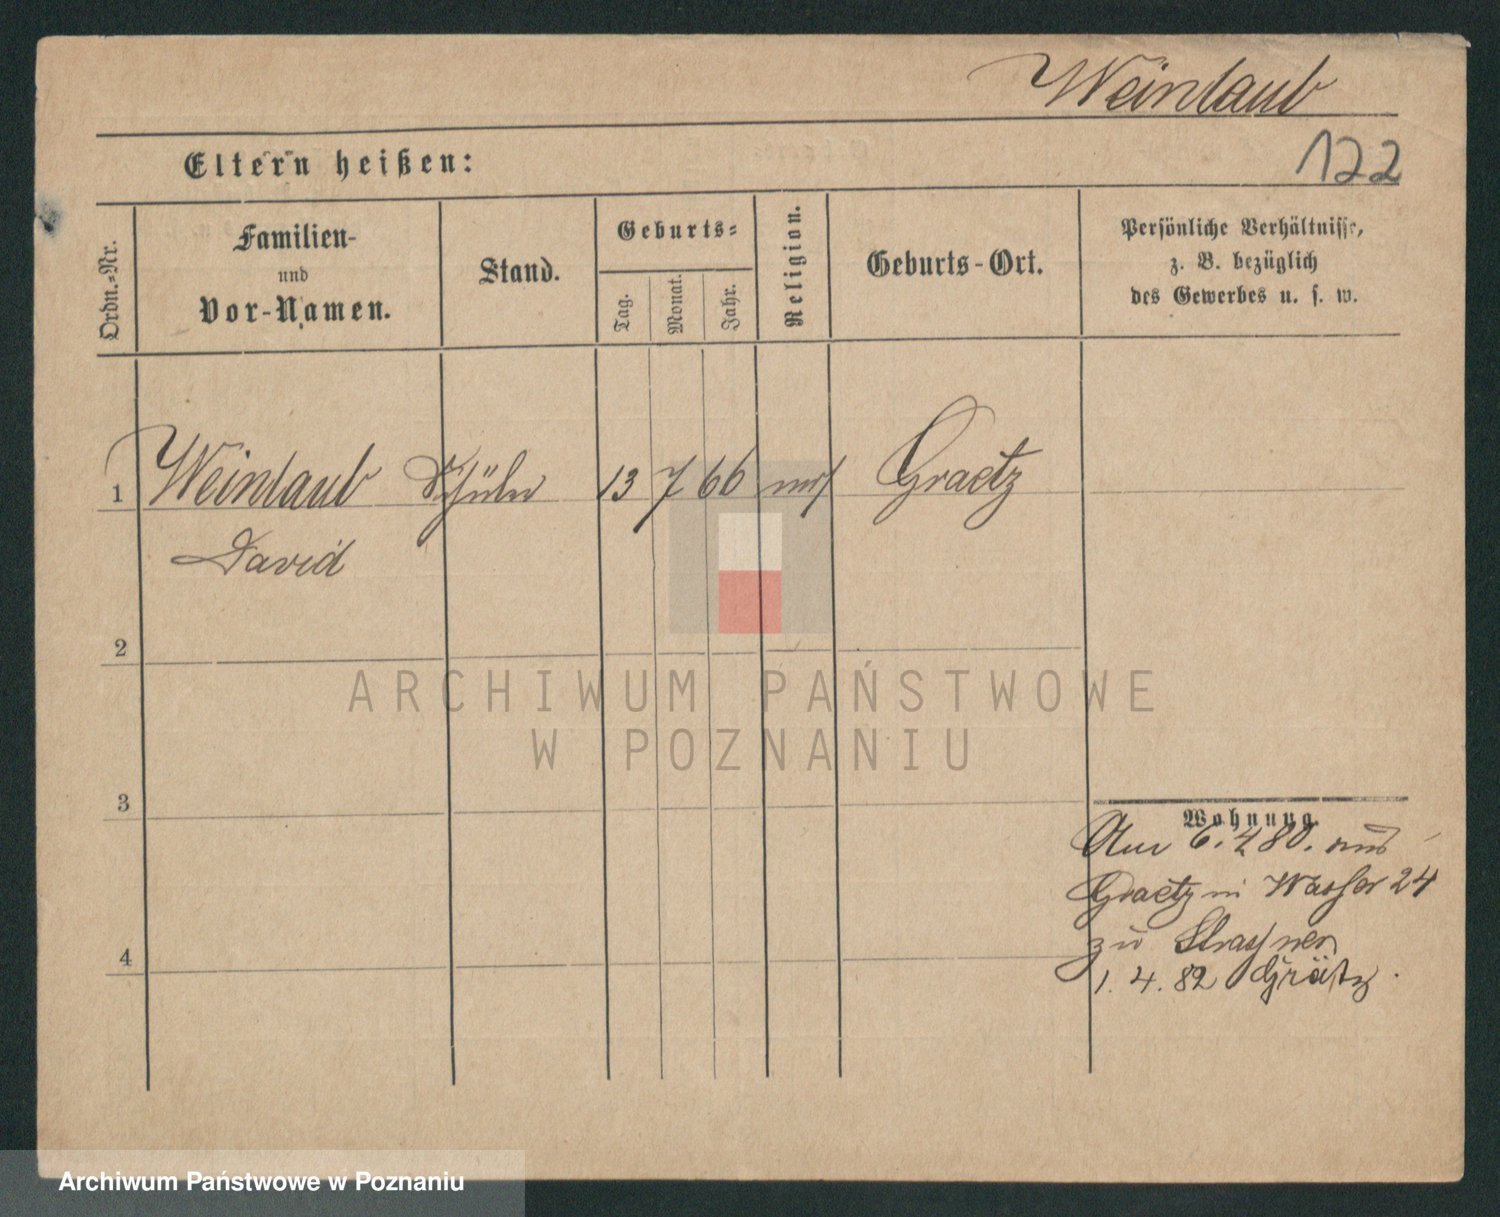 Weinlaub
122
Eltern heißen:
Ordn.-Nr.
Familien-
und
Vor-Namen.
Stand.
Geburts-
Tag.
Monat.
Jahr.
Religion.
Geburts-Ort.
Persönliche Verhältnisse,
z. B. bezüglich
des Gewerbes u. s. w.
1 Weinlaub Schüler 13 7 66 mos Graetz
David
2
3
4
Wohnung.
6. 4 80. aus
Graetz in Wasser 24
zu
1. 4. 82 Grätz.
ARCHIWUM PAŃSTWOWE
W POZNANIU
Archiwum Państwowe w Poznaniu